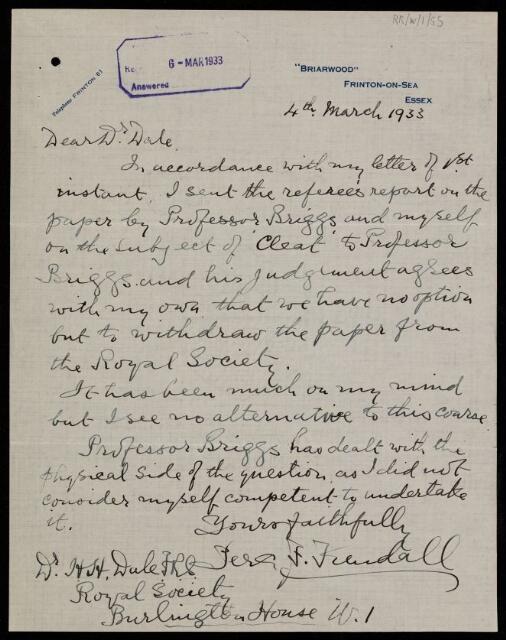 RR/W/1/55
6-MAR 1933
Answered
Telephone FRINTON 81
"BRIARWOOD"
FRINTON-ON-SEA
ESSEX
4th March 1933
Dear Dr Dale
In accordance with my letter of 1st
instant, I sent the referee's report on the
paper by Professor Briggs and myself
on the subject of 'Cleat' to Professor
Briggs and his judgement agrees
with my own that we have no option
but to withdraw the paper from
the Royal Society.
It has been much on my mind
but I see no alternative to this course
Professor Briggs has dealt with the
physical side of the question, as I did not
consider myself competent to undertake
it.
Yours faithfully
Dr H.H. Dale FRS
Royal Society
Burlington House W.1